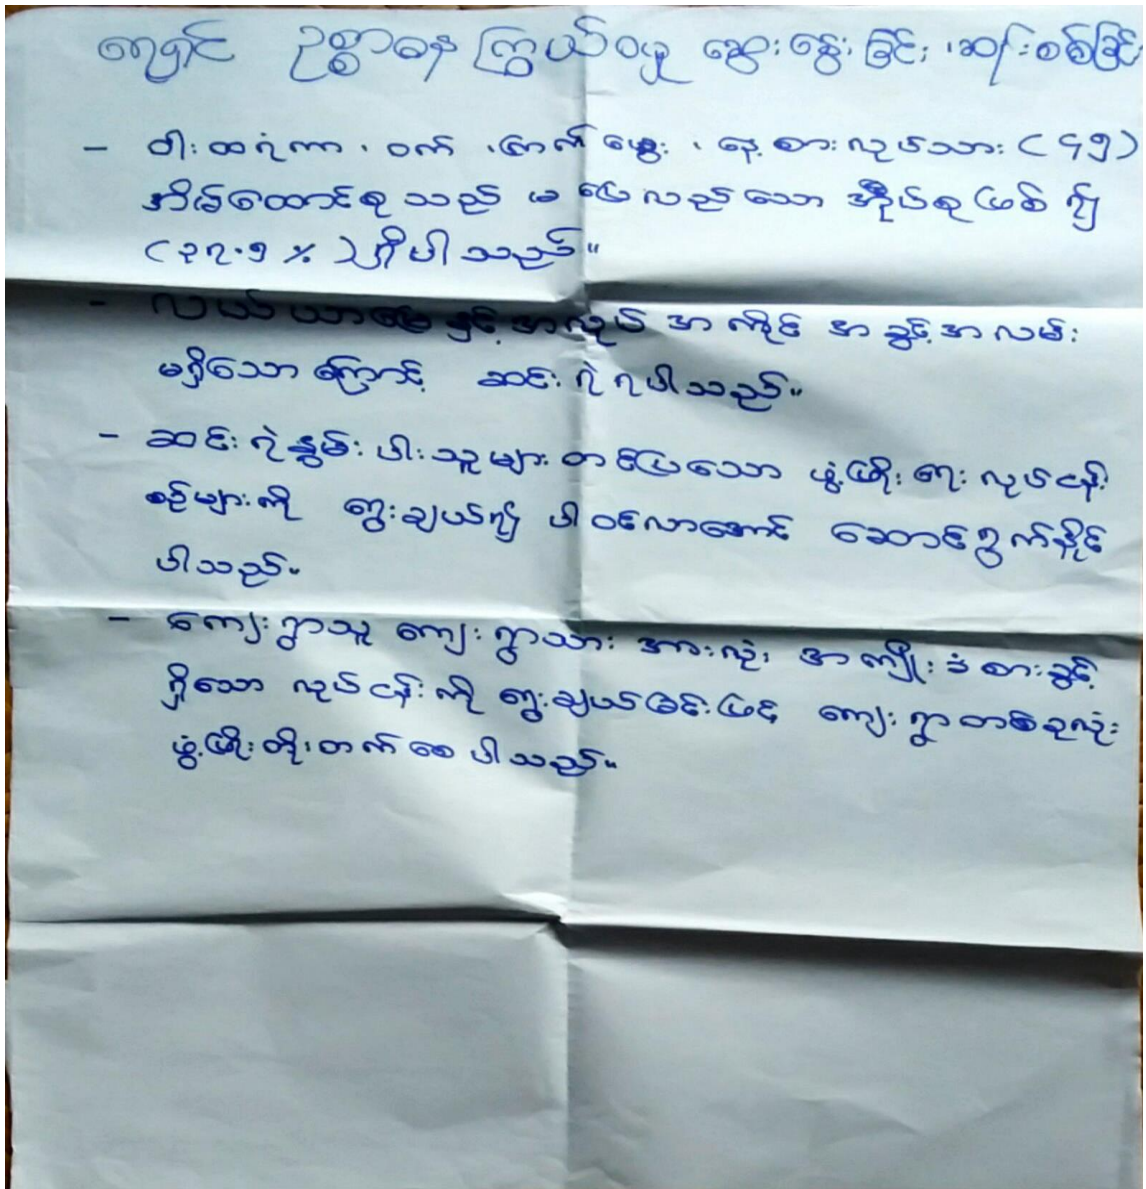 ကျေးရွာ ဥစ္စာဓန ကြွယ်ဝမှု ဆွေးနွေးခြင်း၊ ဆန်းစစ်ခြင်း
- ဝါးထရံကာ၊ ဝက်၊ ကြက်မွေး၊ နေ့စားလုပ်သား (၄၅)
အိမ်ထောင်စုသည် မပြေလည်သော အုပ်စုဖြစ်၍
(၃၇.၅ %) ရှိပါသည်။
- လယ်ယာမြေနှင့် အလုပ်အကိုင် အခွင့်အလမ်း
မရှိသောကြောင့် ဆင်းရဲရပါသည်။
- ဆင်းရဲနွမ်းပါးသူများ တင်ပြသော ဖွံ့ဖြိုးရေး လုပ်ငန်း
စဉ်များကို ရွေးချယ်၍ ပါဝင်လာအောင် ဆောင်ရွက်နိုင်
ပါသည်။
- ကျေးရွာသူ ကျေးရွာသား အားလုံး အကျိုးခံစားခွင့်
ရှိသော လုပ်ငန်းကို ရွေးချယ်ခြင်းဖြင့် ကျေးရွာတစ်ခုလုံး
ဖွံ့ဖြိုးတိုးတက်စေပါသည်။